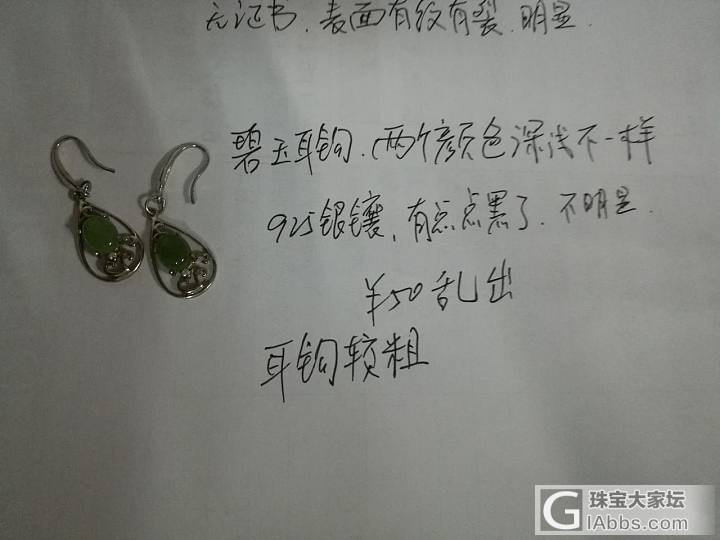 无证书.表面有纹有裂.明显.
碧玉耳钩.两个颜色深浅不一样
925银镶,有点点黑了.不明显.
¥50乱出
耳钩较粗
珠宝大家坛
GIAbbs.com